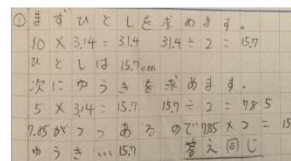 ① まずひとしを求めます。
10 × 3.14 = 31.4 31.4 ÷ 2 = 15.7
ひとしは 15.7cm
次にゆうきを求めます。
5 × 3.14 = 15.7 15.7 ÷ 2 = 7.85
7.85が2つあるので 7.85 × 2 = 15
ゆうき…15.7 答え同じ